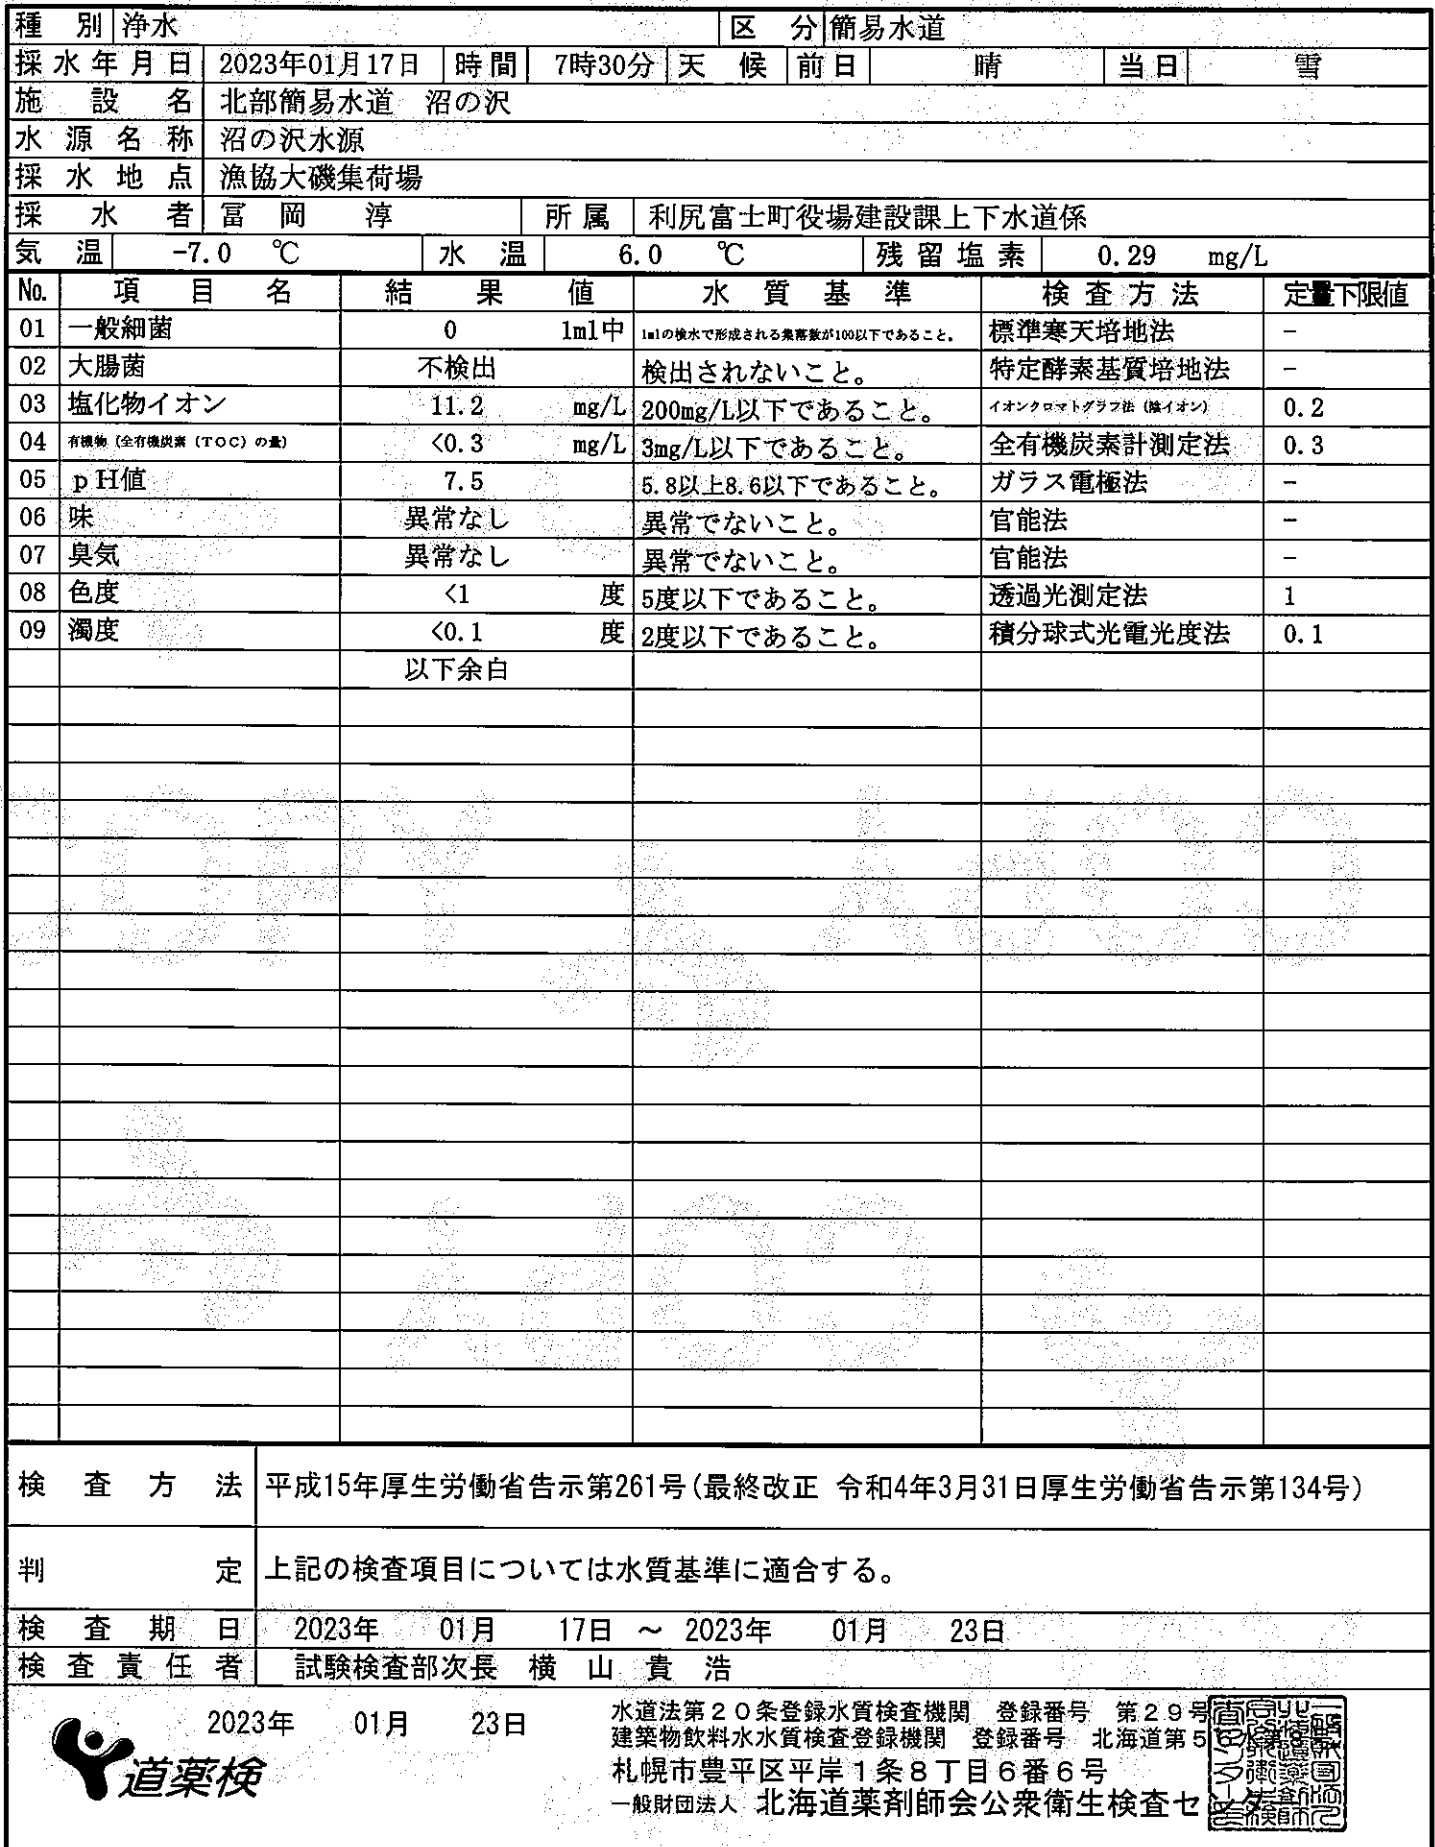 種別 浄水 区分 簡易水道
採水年月日 2023年01月17日 時間 7時30分 天候 前日 晴 当日 雪
施設名 北部簡易水道 沼の沢
水源名称 沼の沢水源
採水地点 漁協大磯集荷場
採水者 冨岡 淳 所属 利尻富士町役場建設課上下水道係
気温 -7.0 ℃ 水温 6.0 ℃ 残留塩素 0.29 mg/L
No. 項目名 結果値 水質基準 検査方法 定量下限値
01 一般細菌 0 1ml中 1mlの検水で形成される集落数が100以下であること。 標準寒天培地法 -
02 大腸菌 不検出 検出されないこと。 特定酵素基質培地法 -
03 塩化物イオン 11.2 mg/L 200mg/L以下であること。 イオンクロマトグラフ法(陰イオン) 0.2
04 有機物(全有機炭素(TOC)の量) <0.3 mg/L 3mg/L以下であること。 全有機炭素計測定法 0.3
05 pH値 7.5 5.8以上8.6以下であること。 ガラス電極法 -
06 味 異常なし 異常でないこと。 官能法 -
07 臭気 異常なし 異常でないこと。 官能法 -
08 色度 <1 度 5度以下であること。 透過光測定法 1
09 濁度 <0.1 度 2度以下であること。 積分球式光電光度法 0.1
以下余白
検査方法 平成15年厚生労働省告示第261号(最終改正 令和4年3月31日厚生労働省告示第134号)
判定 上記の検査項目については水質基準に適合する。
検査期日 2023年 01月 17日 ～ 2023年 01月 23日
検査責任者 試験検査部次長 横山 貴浩
2023年 01月 23日
水道法第20条登録水質検査機関 登録番号 第29号
建築物飲料水水質検査登録機関 登録番号 北海道第5
札幌市豊平区平岸1条8丁目6番6号
一般財団法人 北海道薬剤師会公衆衛生検査センター
道薬検